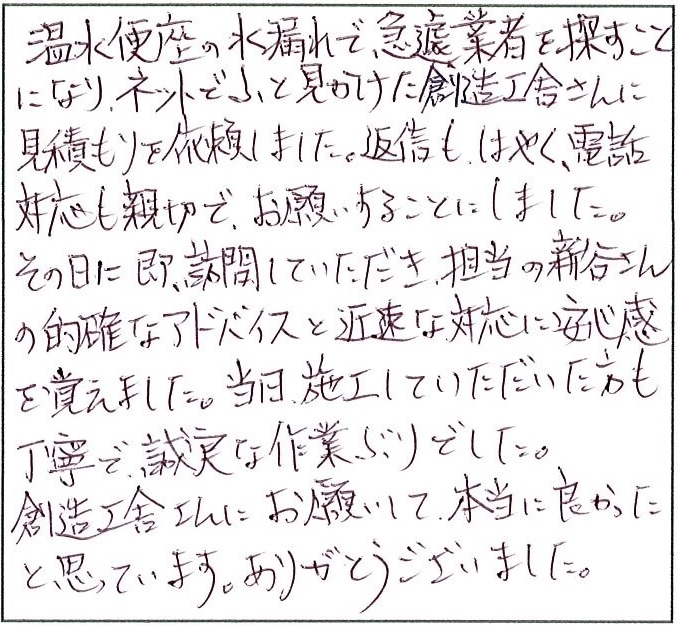 温水便座の水漏れで、急遽業者を探すこと
になり、ネットでふと見かけた創造工舎さんに
見積もりを依頼しました。返信も、はやく、電話
対応も親切で、お願いすることにしました。
その日に即、訪問していただき、担当の新谷さん
の的確なアドバイスと迅速な対応に安心感
を覚えました。当日、施工していただいた方も
丁寧で、誠実な作業ぶりでした。
創造工舎さんにお願いして、本当に良かった
と思っています。ありがとうございました。